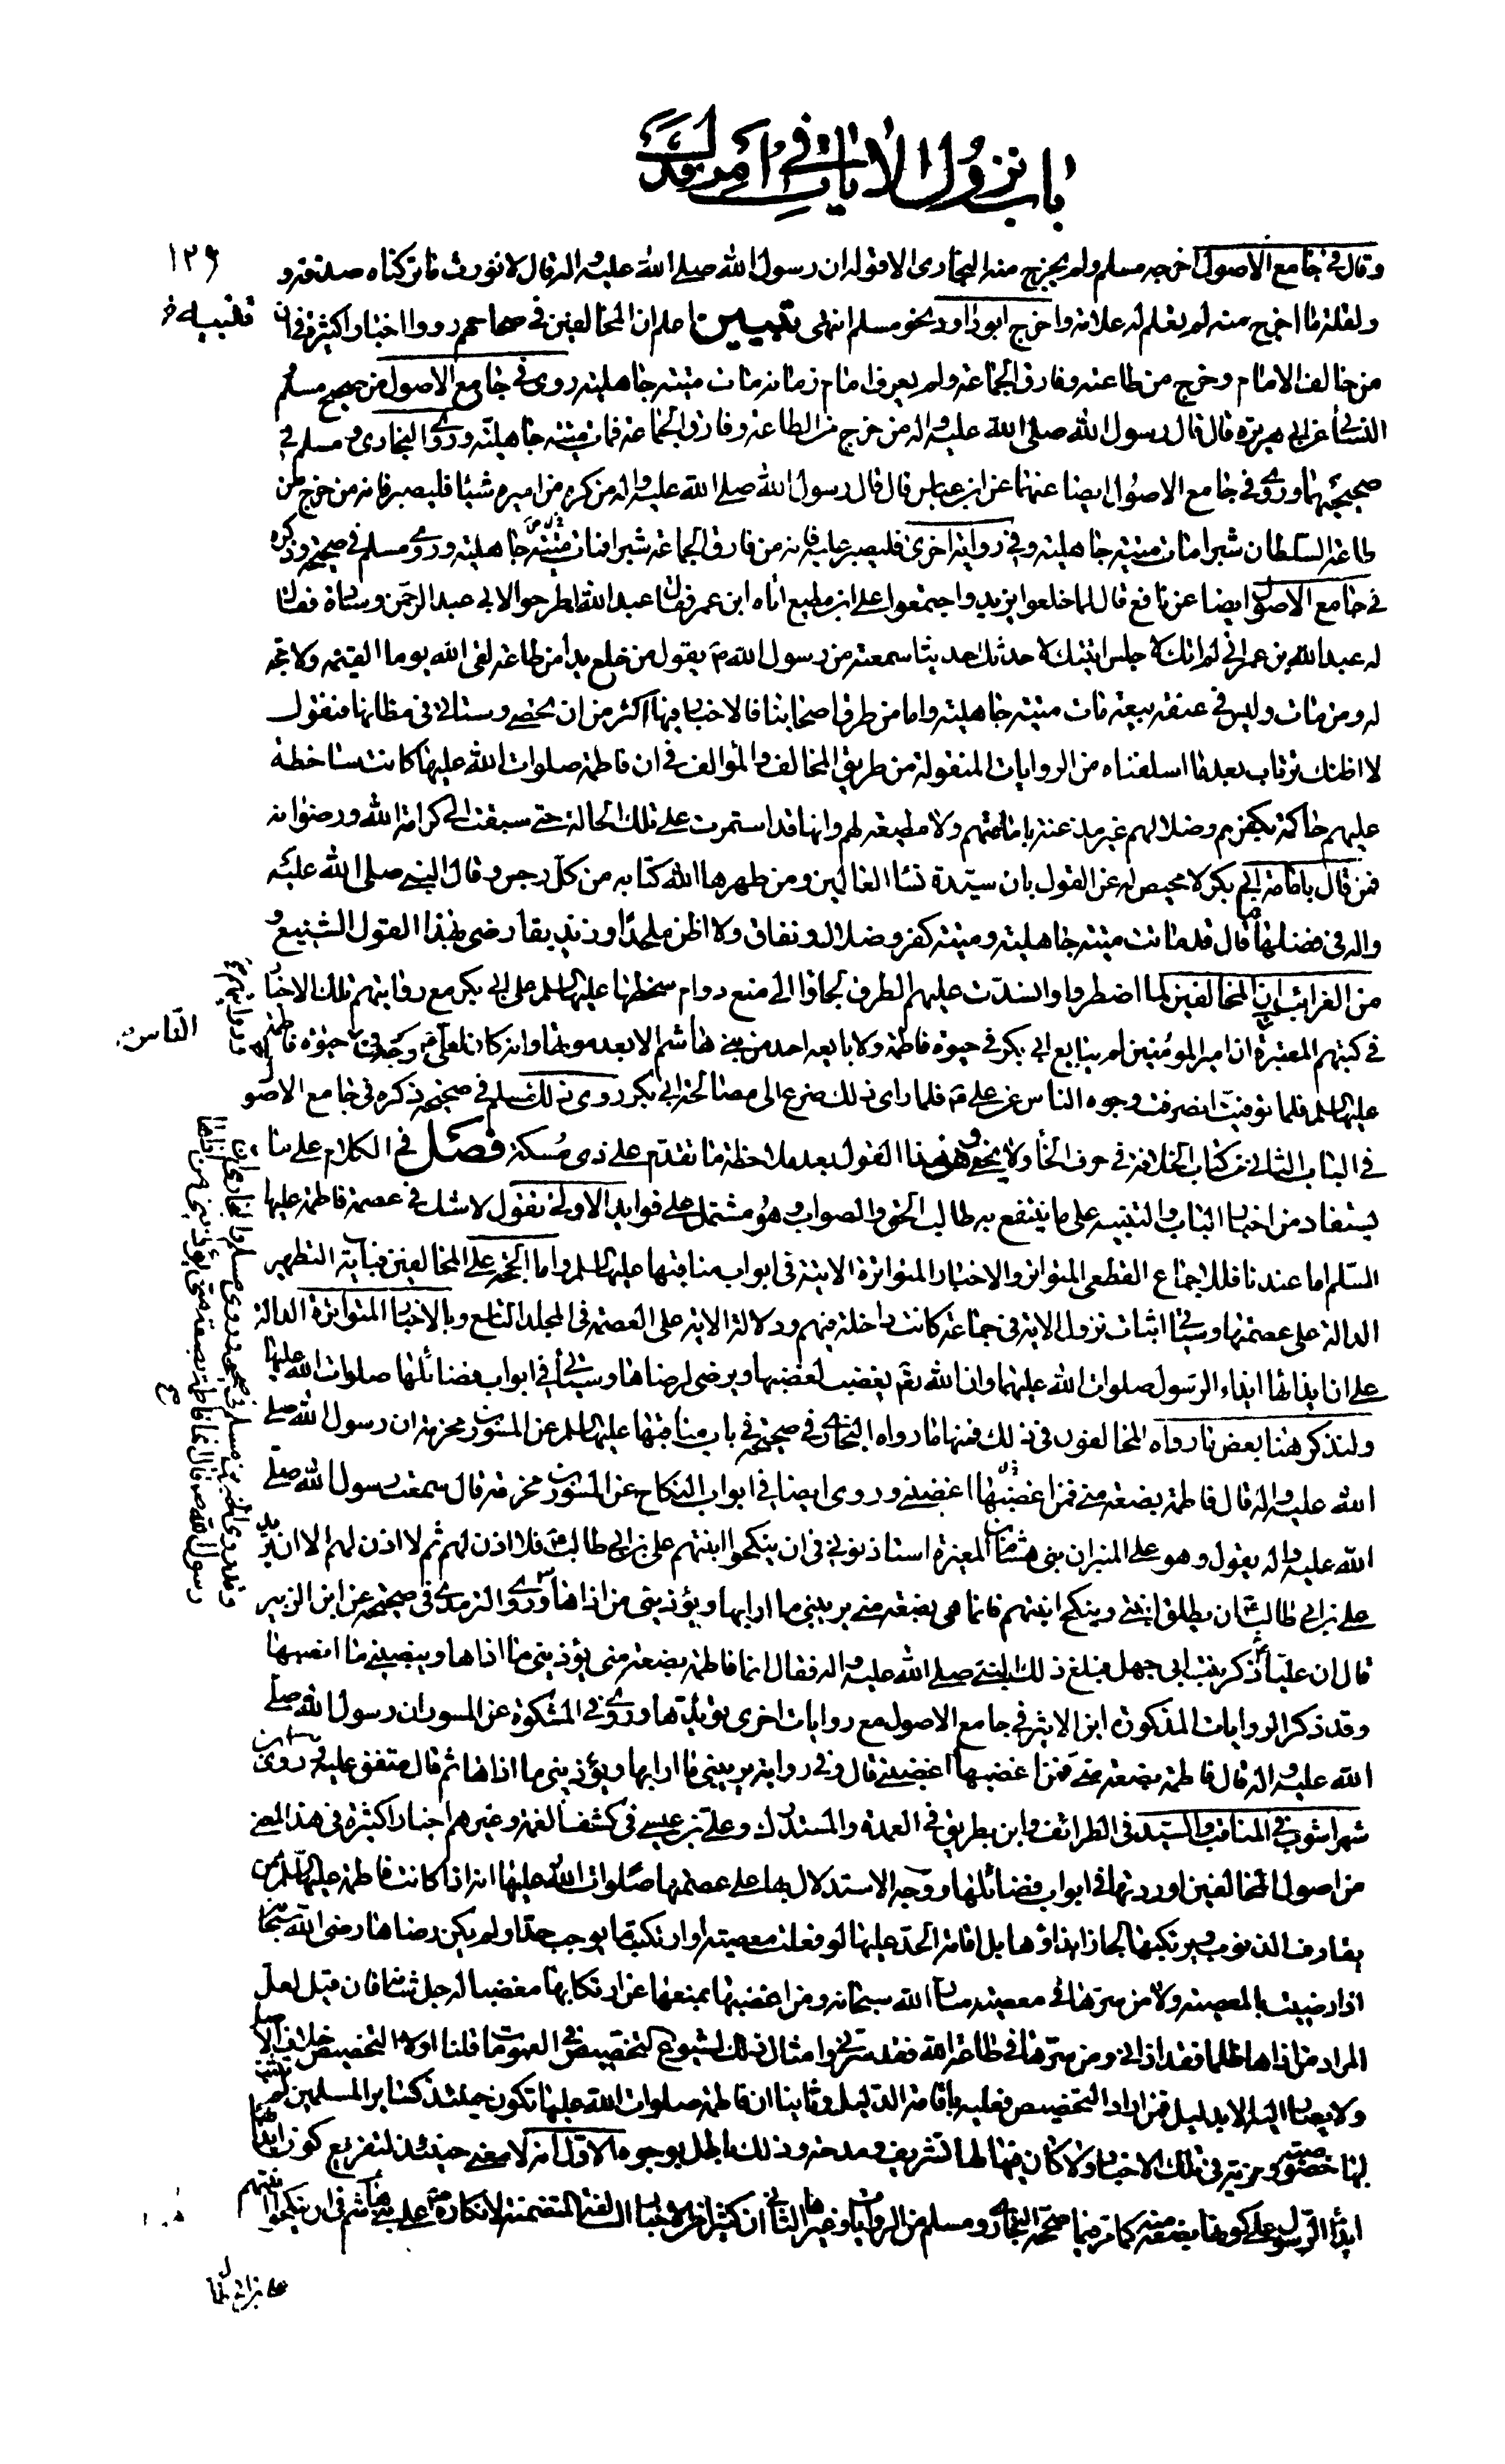 باب نزول الآيات في أمر فدك
١٢٦
وقال في جامع الاصول اخرجه مسلم ولم يخرج منه البخارى الا قوله ان رسول الله صلى الله عليه واله قال لا نورث ما تركناه صدقة و
ولقلة ما اخرج منه لم يعلم له علامة واخرج ابو داود نحو مسلم انتهى تبيين اعلم ان المخالفين في صحاحهم رووا اخبارا كثيرة في ان
من خالف الامام وخرج من طاعته وفارق الجماعة ولم يعرف امام زمانه مات ميتة جاهلية روى في جامع الاصول من صحيح مسلم
النسائى عن ابى هريرة قال قال رسول الله صلى الله عليه واله من خرج من الطاعة وفارق الجماعة فمات ميتة جاهلية وروى البخارى ومسلم في
صحيحيهما وروى في جامع الاصول ايضا عنهما عن ابن عباس قال قال رسول الله صلى الله عليه واله من كره من اميره شيئا فليصبر فانه من خرج من
طاعة السلطان شبرا مات ميتة جاهلية وفي رواية اخرى فليصبر عليه فانه من فارق الجماعة شبرا فمات ميتة جاهلية وروى مسلم في صحيحه وذكره
في جامع الاصول ايضا عن نافع قال لما خلعوا يزيد واجتمعوا على ابن مطيع اتاه ابن عمر فقال عبد الله اطرحوا لابى عبد الرحمن وسادة فقال
له عبد الله بن عمر انى لم اتك لاجلس اتيتك لاحدثك حديثا سمعته من رسول الله ص يقول من خلع يدا من طاعة لقى الله يوم القيمة ولا حجة
له ومن مات وليس في عنقه بيعة مات ميتة جاهلية واما من طرق اصحابنا فالاخبار فيها اكثر من ان تحصى وستاتى في مظانها فنقول
لا اظنك ترتاب بعد ما اسلفناه من الروايات المنقولة من طريق المخالف والموالف في ان فاطمة صلوات الله عليها كانت ساخطة
عليهم حاكمة بكفرهم وضلالهم غير مذعنة بامامتهم ولا مطيعة لهم وانها قد استمرت على تلك الحالة حتى سبقت الى كرامة الله ورضوانه
فمن قال بامامة ابى بكر لا محيص له عن القول بان سيدة نساء العالمين ومن طهرها الله كتابه من كل رجس وقال النبى صلى الله عليه
واله في فضلها ما قال قد ماتت ميتة جاهلية وميتة كفر وضلال ونفاق ولا اظن ملحدا وزنديقا رضى بهذا القول الشنيع و
من الغرائب ان المخالفين لما اضطروا وانسدت عليهم الطرق لجاوا الى منع دوام سخطها عليها السلم على ابى بكر مع روايتهم تلك الاخبار
في كتبهم المعتبرة ان امير المؤمنين لم يبايع ابى بكر في حيوة فاطمة ولا بايعه احد من بنى هاشم الا بعد موتها وانه كان لعلى ع وجه في حيوة فاطمة
عليها السلم فلما توفيت انصرفت وجوه الناس عن على ع فلما راى ذلك ضرع الى مصالحة ابى بكر روى ذلك مسلم في صحيحه ذكره في جامع الاصو
في الباب الثانى من كتاب الخلافة في حرف الخاء ولا يخفى وهن هذا القول بعد ملاحظة ما تقدم على ذى مسكة فصل في الكلام على ما
يستفاد من اخبار الباب والتنبيه على ما ينتفع به طالب الحق والصواب وهو مشتمل على فوايد الاولى نقول لا شك في عصمة فاطمة عليها
السلم اما عندنا فللاجماع القطعى المتواتر والاخبار المتواترة الاتية في ابواب مناقبها عليها السلم واما الحجة على المخالفين فباية التطهير
الدالة على عصمتها وسياتى اثبات نزول الاية في جماعة كانت داخلة فيهم ودلالة الاية على العصمة في المجلد التاسع وبالاخبار المتواترة الدالة
على ان ايذائها ايذاء الرسول صلوات الله عليهما وان الله تعالى يغضب لغضبها ويرضى لرضاها وسياتى في ابواب فضائلها صلوات الله عليها
ولنذكر هنا بعض ما رواه المخالفون في ذلك فمنها ما رواه البخارى في صحيحه في باب مناقبها عليها السلم عن المسور بن مخرمة ان رسول الله صلى
الله عليه واله قال فاطمة بضعة منى فمن اغضبها اغضبنى وروى ايضا في ابواب النكاح عن المسور بن مخرمة قال سمعت رسول الله صلى
الله عليه واله يقول وهو على المنبر ان بنى هشام بن المغيرة استاذنونى في ان ينكحوا ابنتهم على بن ابى طالب ع فلا اذن لهم ثم لا اذن لهم الا ان يريد
على بن ابى طالب ان يطلق ابنتى وينكح ابنتهم فانما هى بضعة منى يريبنى ما ارابها ويؤذينى من اذاها وروى الترمذى في صحيحه عن ابن الزبير
قال ان عليا ذكر بنت ابى جهل فبلغ ذلك النبى صلى الله عليه واله فقال انما فاطمة بضعة منى يؤذينى ما اذاها وينصبنى ما انصبها
وقد ذكر الروايات المذكورة ابن الاثير في جامع الاصول مع روايات اخرى تؤيدها وروى في المشكوة عن المسور ان رسول الله صلى
الله عليه واله قال فاطمة بضعة منى فمن اغضبها اغضبنى قال وفي رواية يريبنى ما ارابها ويؤذينى ما اذاها ثم قال متفق عليه وروى ابن
شهراشوب في المناقب والسيد في الطرائف وابن بطريق في العمدة والمستدرك وعلى بن عيسى في كشف الغمة وغيرهم اخبارا كثيرة في هذا المعنى
من اصول المخالفين اوردتها في ابواب فضائلها ووجه الاستدلال بها على عصمتها صلوات الله عليها انه اذا كانت فاطمة عليها السلم ممن
يقارف الذنوب ويرتكبها لجاز ايذاؤها بل اقامة الحد عليها لو فعلت معصية او ارتكبت ما يوجب حدا ولم يكن رضاها رضى الله سبحانه
اذا رضيت بالمعصية ولا من سرها في معصية سارا الله سبحانه ومن اغضبها بمنعها عن ارتكابها مغضبا له جل شانه فان قيل لعل
المراد من اذاها ظلما فقد اذانى ومن سرها في طاعة الله فقد سرنى وامثال ذلك لشيوع التخصيص في العمومات قلنا اولا التخصيص خلاف الاصل
ولا يصار اليه الا بدليل فمن اراد التخصيص فعليه باقامة الدليل وثانيا ان فاطمة صلوات الله عليها تكون حينئذ كسائر المسلمين لم تثبت
لها خصوصية ومزية في تلك الاخبار ولا كان فيها لها تشريف ومدحة وذلك باطل بوجوه الاول انه لا معنى حينئذ لتفريع كون ايذائها
ايذاء الرسول على كونها بضعة منه كما مر فيما صححه البخارى ومسلم من الروايات وغيرها الثانى ان كثيرا من الاخبار السالفة المتضمنة لانكاره ص على بنى هاشم في ان ينكحوا ابنتهم
على بن ابى طا
الناس
وقد روى الخبر مسلم في صحيحه وروى مسلم والبخارى
رسول الله ص قال انما فاطمة بضعة منى يؤذينى من اذاها